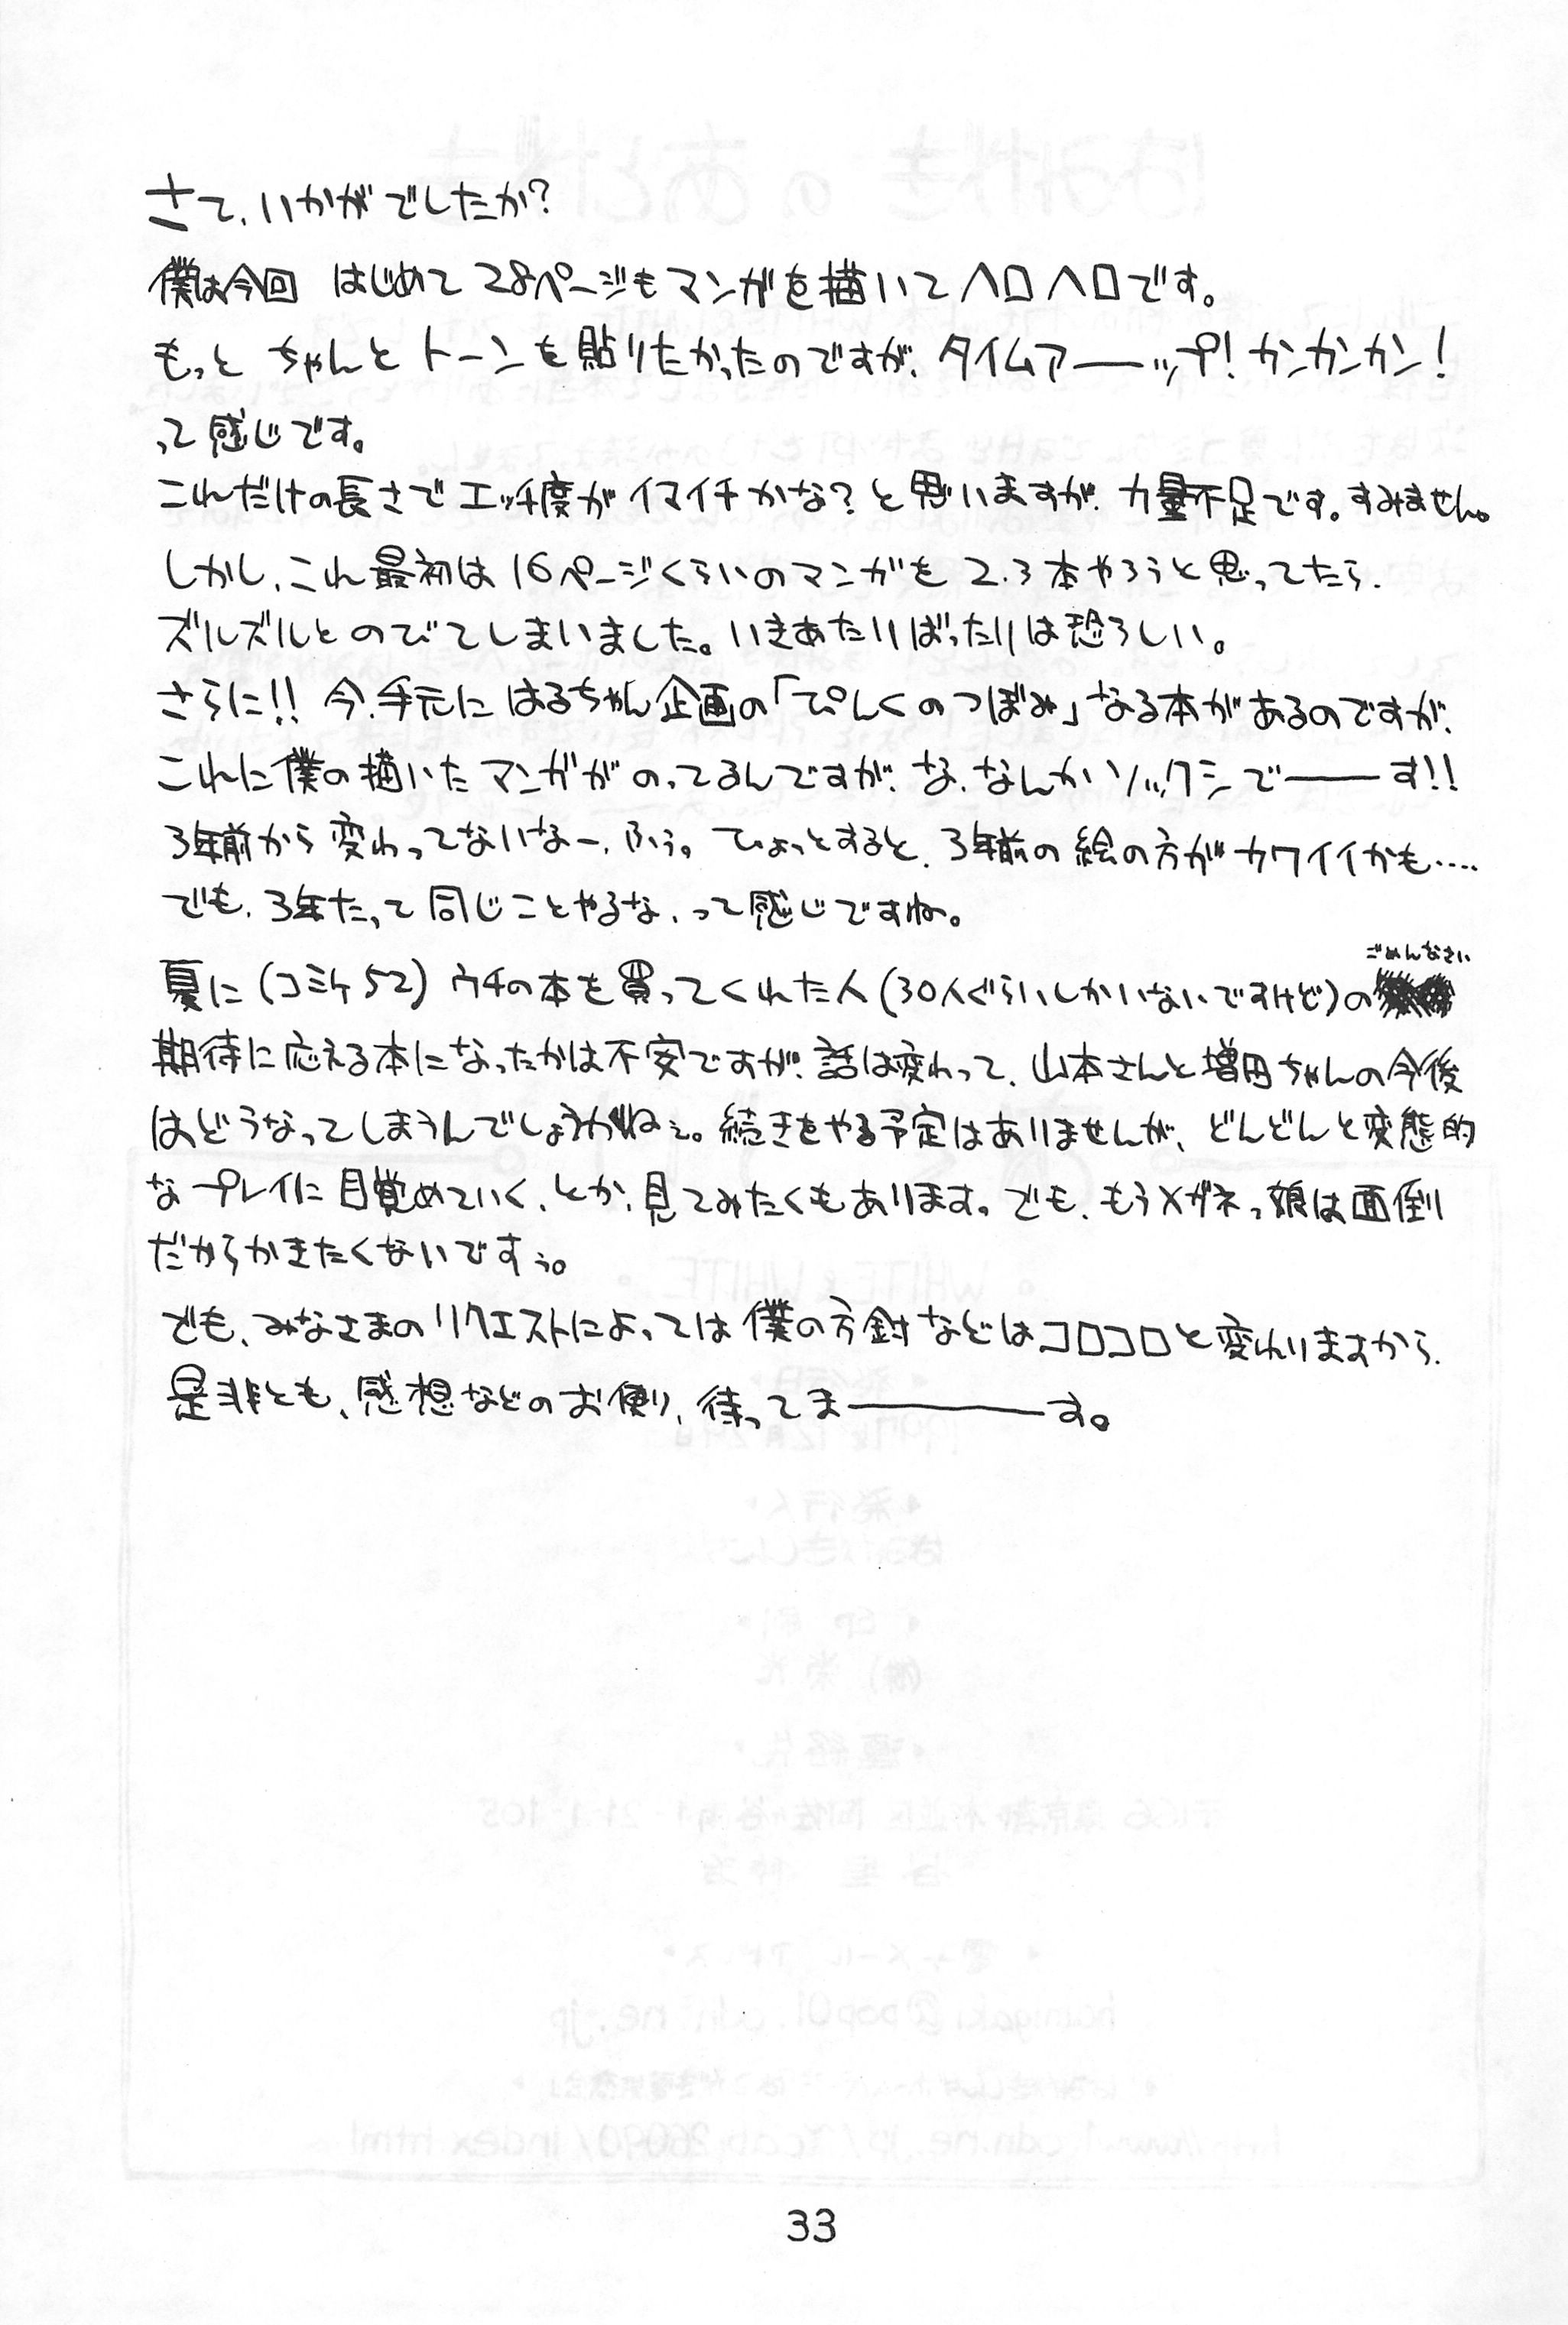 さて、いかがでしたか?
僕は今回 はじめて28ページもマンガを描いてヘロヘロです。
もっと ちゃんと トーンを貼りたかったのですが、タイムアーーップ!カンカンカン!
って感じです。
これだけの長さで エッチ度が イマイチかな?と思いますが、力量不足です。すみません。
しかし、これ最初は16ページくらいのマンガを2.3本やろうと思ってたら、
ズルズルとのびてしまいました。いきあたりばったりは恐ろしい。
さらに!!今、手元に はるちゃん企画の「ぴんくのつぼみ」なる本があるのですが、
これに僕の描いたマンガがのってるんですが、な、なんかソックシで――す!!
3年前から変わってないなー、ふぅ。ひょっとすると、3年前の絵の方がカワイイかも‥‥
でも、3年たって同じことやるな、って感じですね。
夏に(コミケ52)ウチの本を買ってくれた人(30人ぐらいしかいないですけど)の
ごめんなさい
期待に応える本になったかは不安ですが、話は変わって、山本さんと増田ちゃんの今後
はどうなってしまうんでしょうかねぇ。続きをやる予定はありませんが、どんどんと変態的
なプレイに目覚めていく、とか、見てみたくもあります。でも、もうメガネっ娘は面倒
だからかきたくないですぅ。
でも、みなさまのリクエストによっては僕の方針などはコロコロと変わりますから、
是非とも、感想などのお便り、待ってま――――す。
33